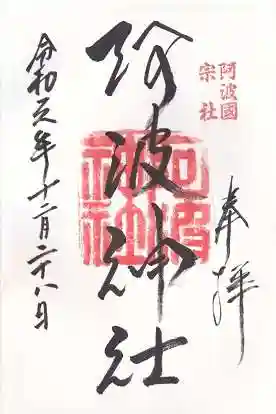 阿波國
宗社
奉拝
阿波神社
阿波
神社
令和元年十二月二十八日